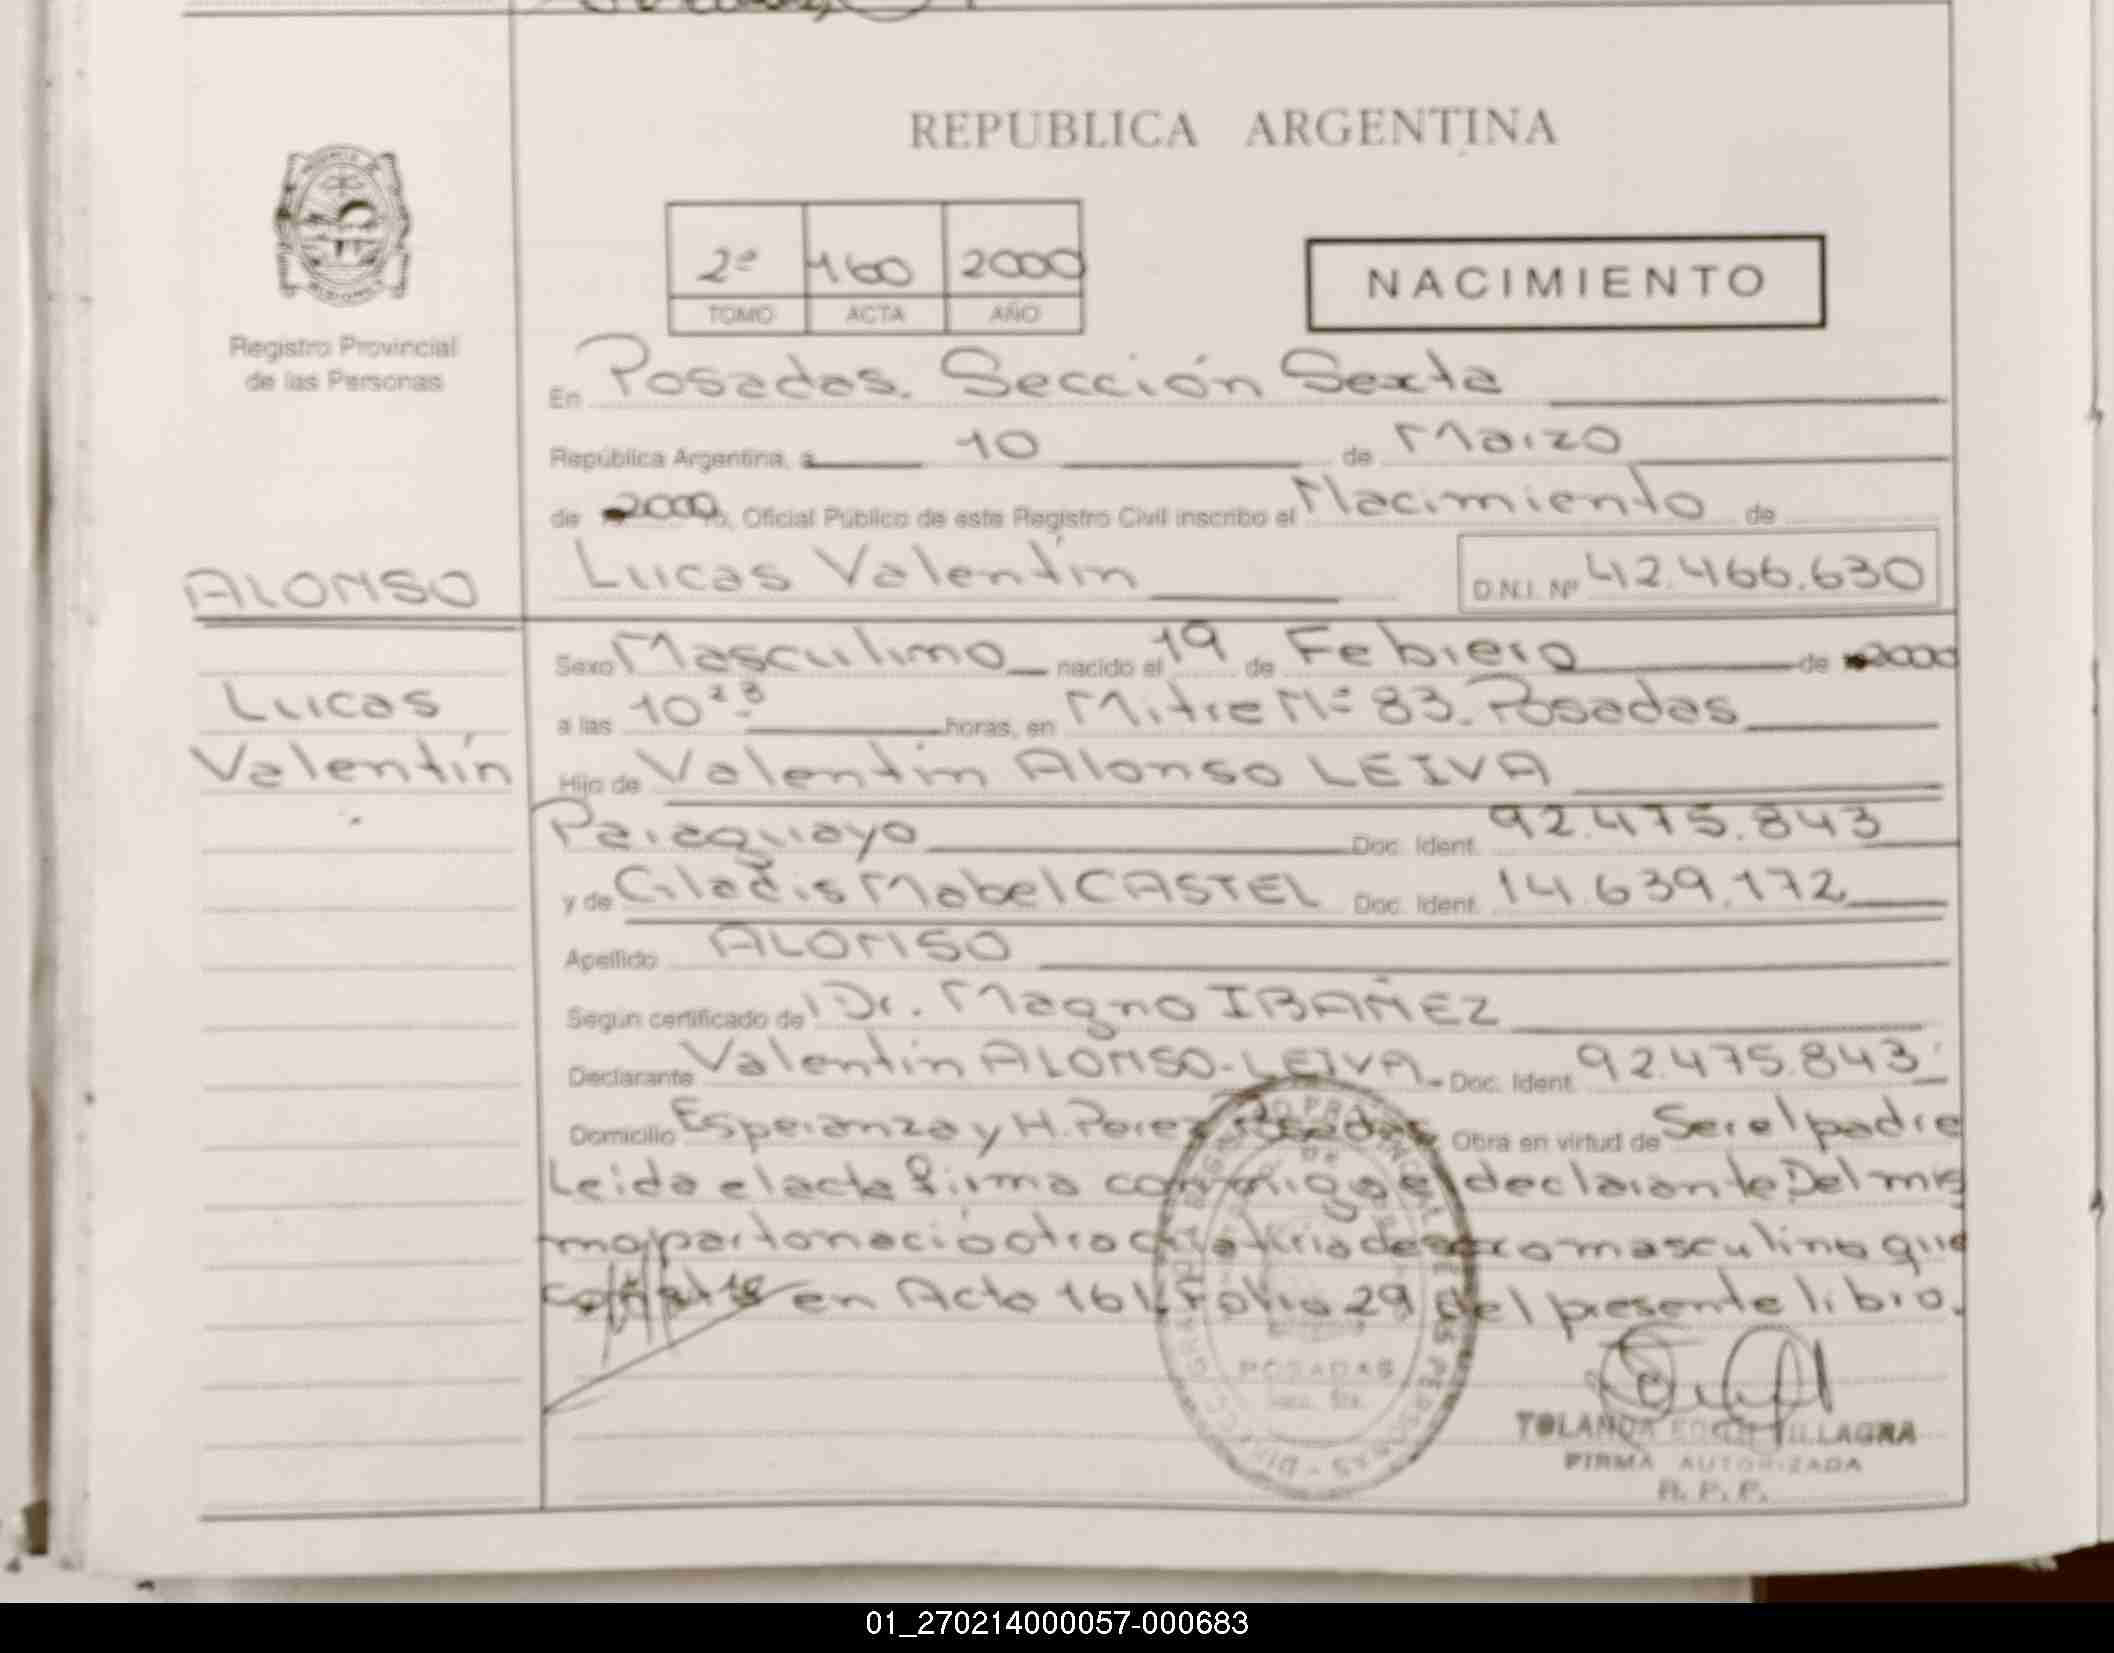 REPUBLICA ARGENTINA
2º 160 2000
TOMO ACTA AÑO
NACIMIENTO
Registro Provincial
de las Personas
En Posadas. Sección Sexta
República Argentina, a 10 de Marzo
de 2000, Oficial Público de este Registro Civil inscribo el Nacimiento de
ALONSO
Lucas Valentín
D.N.I. Nº 42.466.630
Lucas
Valentín
Sexo Masculino nacido el 19 de Febrero de 2000
a las 10²³ horas, en Mitre Nº 83. Posadas
Hijo de Valentin Alonso LEIVA
Paraguayo Doc. Ident. 92.475.843
y de Gladis Mabel CASTEL Doc. Ident. 14.639.172
Apellido ALONSO
Según certificado de Dr. Magno IBAÑEZ
Declarante Valentin ALONSO-LEIVA- Doc. Ident. 92.475.843
Domicilio Esperanza y H. Perez Posadas Obra en virtud de Ser el padre
Leida el acta firma conmigo el declarante. Del mis
mo parto nació otra criatura de sexo masculino que
consta en Acta 161 Folio 29 del presente libro.
POSADAS
Secc. 6ta.
YOLANDA VILLAGRA
FIRMA AUTORIZADA
R. P. P.
01_270214000057-000683